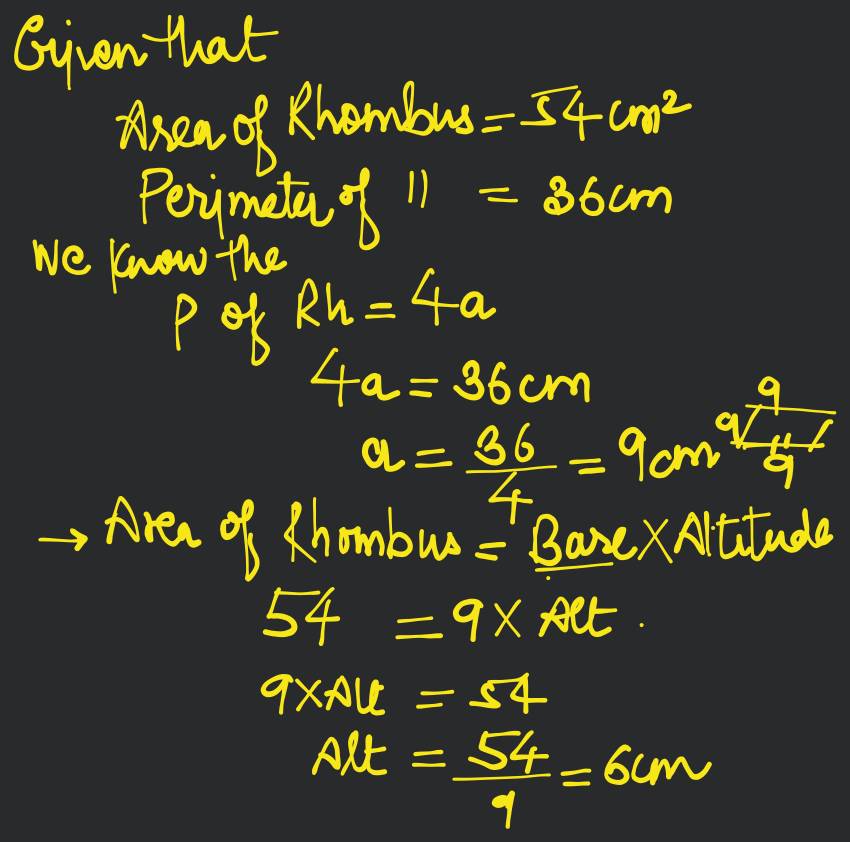 Given that
Area of Rhombus = 54 cm²
Perimeter of " = 36cm
We know the
P of Rh = 4a
4a = 36cm
a = 36/4 = 9cm
9
9
9
→ Area of Rhombus = Base × Altitude
54 = 9 × Alt.
9 × Alt = 54
Alt = 54/9 = 6cm